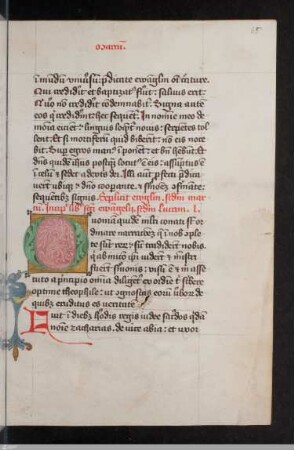 marcu
in mudu vniuſu pdicate ewagliu oi creature.
Qui credidit et baptizat fuit : ſaluus erit.
Qui uo no credidit codemnabit. Signa aute
eos q credidint hec sequet. In nomie meo de
monia eiciet : linguis loqnt nouis : ſerpetes tol
lent. Et ſi mortiferu quid biberit no eis noce
bit. Sup egros man iponet et bn hebut. Et
dns quide ihus postq locut e eis : aſſuptus e
i celu et ſedet a dextris dei. Illi aut pfecti pdica
uert ubiq dno coopante et ſmone confirmate
ſequentibus ſignis. Explicit ewgliu ſcdm mar
cu. Incipit ewageliu ſcdm Lucam. I.
Quoniam quide multi conati ſut or
dinare narratioe q i nob aple
te ſut reru : ſicut tradiderut nobis.
qui ab inicio ipi uidert et miniſtri
fuert ſmonis : viſu e et m aſſe
cuto a principio omia diligeter ex ordine t ſcribere
optime theophile : ut agnoſcas eoru uborum de
quibus eruditus es veritate
Fuit i diebus herodis regis iudee ſacerdos quida
noie zacharias. de vice abia : et uxor